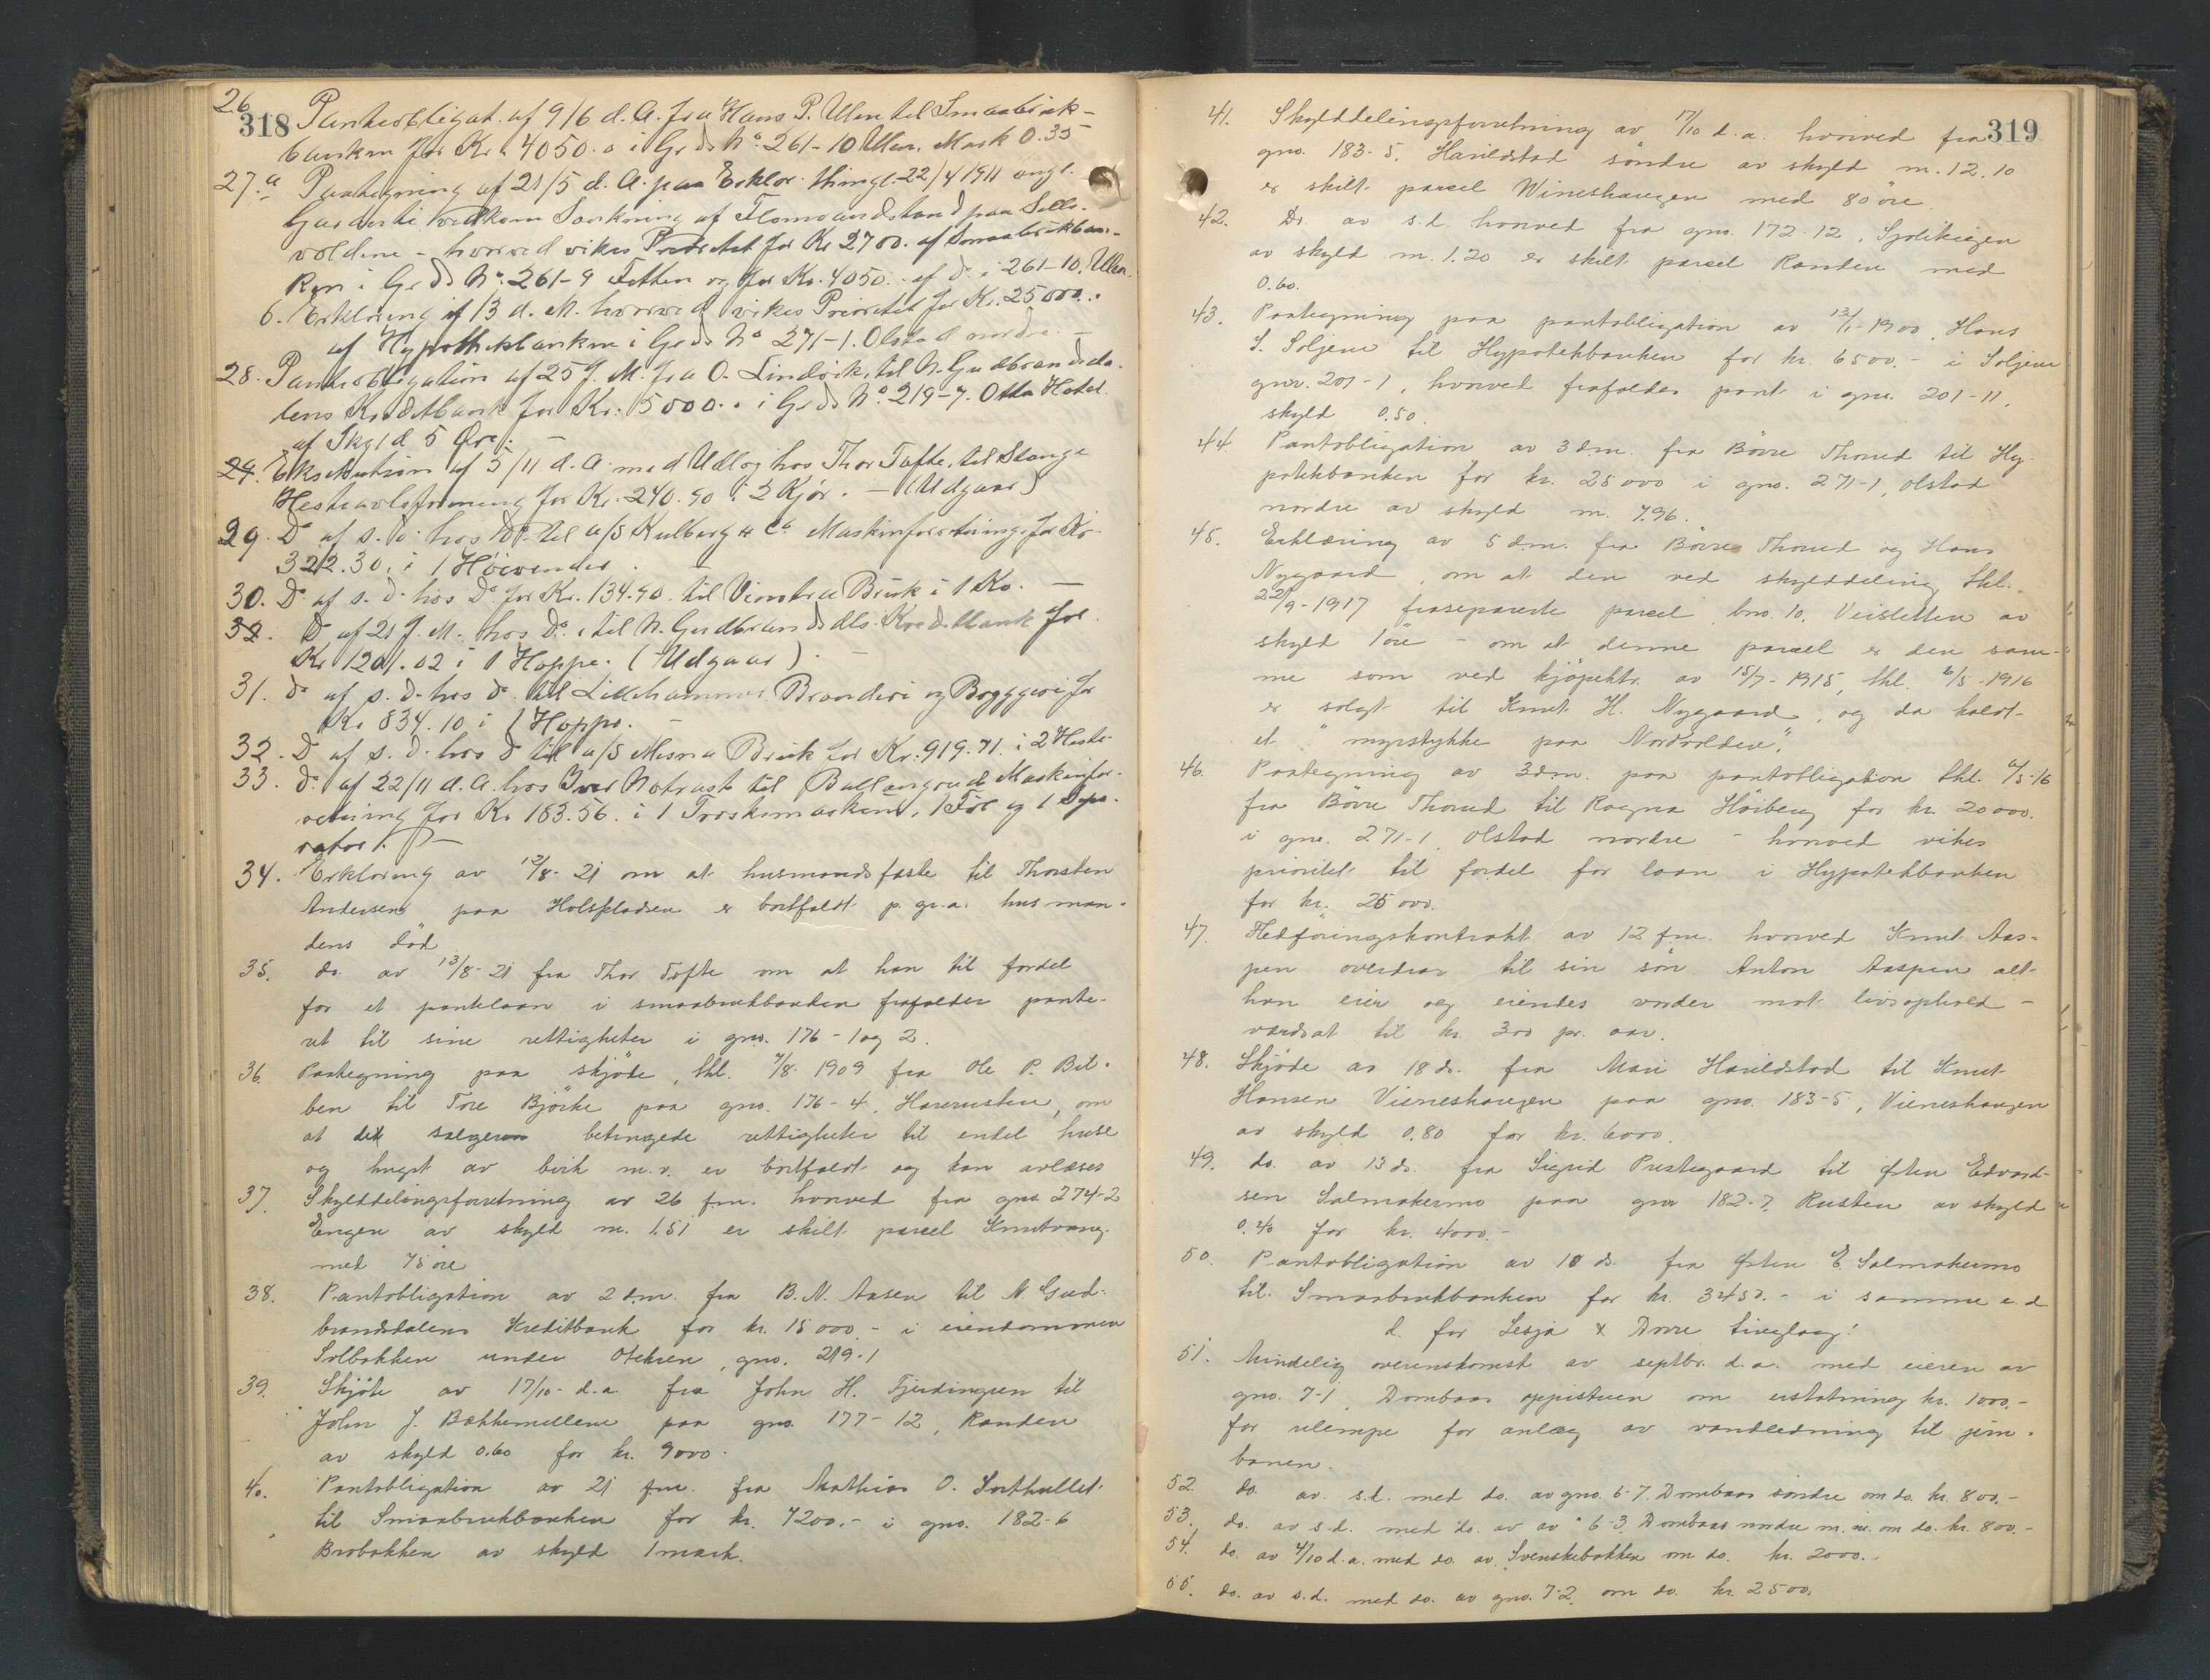 318
26 Panteobligat. af 9/6 d. A. fra Hans P. Ulen til Smaabrukbanken
banken for Kr. 4050.- i G. & No. 261-10 Ulen. Mark 0.35
27.a Paategning af 21/5 d. A. paa Erklær. thingl. 22/4 1911 angl.
Garanti vedkom Senkning af Flomvandstand paa Sells-
voldene - hvorved vikes Prioritet for Kr 2700. af Smaabrukban-
ken i G. & No. 261-9 Fetten og for Kr. 4050.- af do. i 261-10. Ulen
b. Erklæring af 13 d. M. hvorved vikes Prioritet for Kr. 25000..
af Hypothekbanken i G. & No. 271-1. Olstad nordre. -
28. Panteobligation af 25 f. M. fra O. Lindvik til N. Gudbrandsda-
lens Kreditbank for Kr. 15000.. i G. & No. 219-7. Otta Hotel.
af Skyld 5 Øre. -
29. Eksekution af 5/11 d. A. med Udlæg hos Thor Tofte, til Stange
Hesteavlsforening for Kr. 240.90 i 2 Kjør. - (Udgaar)
29. Do af s. D. hos Do. til A/S Kulberg & Co. Maskinforretning, for Kr.
322.30, i 1 Höivender. -
30. Do. af s. D. hos Do. for Kr. 134.90. til Vinstra Bruk i 1 Ko. -
32. Do af 21 f. M. hos Do. til N. Gudbrandsdls. Kreditbank for
Kr 1201.02 i 1 Hoppe. (Udgaar). -
31. Do af s. D. hos Do. til Lillehammer Brænderi og Bryggeri for
Kr. 834.10 i 1 Hoppe. -
32. Do af s. D. hos Do til A/S Mesna Bruk for Kr. 919.71. i 2 Heste.
33. Do. af 22/11 d. A. hos Iver Notrust til Ballangrud Maskinfor-
retning for Kr 183.56. i 1 Træskemaskine, 1 Føl og 1 Sepa-
rator. -
34. Erklæring av 12/8-21 om at husmandsfæste til Thorsten
Andersen paa Holsplassen er bortfaldt p. gr. a. husman-
dens död
35. do. av 13/8-21 fra Thor Tofte om at han til fordel
for et pantelaan i smaabrukbanken frafalder pante-
ret til sine rettigheter i gno. 176-1 og 2.
36. Paategning paa skjöte, thl. 7/8 1909 fra Ole P. Bil-
ben til Tore Björke paa gno. 176-4, Harerusten, om
at det sælgeren betingede rettigheter til endel huse
og hugst av birk m.v. er bortfaldt og kan avlæses
37. Skylddelingsforretning av 26 f.m. hvorved fra gno. 274-2
Engen av skyld m. 1.51 er skilt parcel Knutvang
med 75 öre
38. Pantobligation av 2 d.m. fra B. N. Aasen til N. Gud-
brandsdalens Kreditbank for kr. 15000,- i eiendommen
Solbakken under Ottekren, gno. 219-1
39. Skjöte av 17/10- d.a. fra John H. Fjerdingren til
John J. Bækkemellem paa gno. 177-12, Randen
av skyld 0.60 for kr. 9000.
40. Pantobligation av 21 f.m. fra Mathias O. Sorthullet
til Smaabrukbanken for kr. 7200.- i gno. 182-6
Brobakken av skyld 1 mark.
319
41. Skylddelingsforretning av 17/10 d.a. hvorved fra
gno. 183-5, Harildstad søndre av skyld m. 12.10
er skilt parcel Wineshaugen med 80 öre.
42. Do. av s.d. hvorved fra gno. 172-12,
av skyld m. 1.20 er skilt parcel Randen med
0.60.
43. Paategning paa pantobligation av 13/1-1900 Hans
S. Soljem til Hypotekbanken for kr. 6500.- i Soljem
gnr. 201-1, hvorved frafaldes pant i gno. 201-11,
skyld 0.50.
44. Pantobligation av 3 d.m. fra Bövre Thorud til Hy-
potekbanken for kr. 25000 i gno. 271-1, Olstad
nordre av skyld m. 7.96.
45. Erklæring av 5 d.m. fra Bövre Thorud og Hans
Nygaard, om at den ved skylddeling thl.
22/9-1917 fraseparerte parcel bno. 10, Veisletten av
skyld 1 öre - om at denne parcel er den sam-
me som ved kjöpektr. av 15/7-1915, thl. 6/5-1916
er solgt til Knut H. Nygaard, og da kaldt-
et "myrstykke paa Nordvolden".
46. Paategning av 3 d.m. paa pantobligation thl. 6/5-16
fra Bövre Thorud til Ragna Höiberg for kr. 20000.
i gno. 271-1 Olstad nordre - hvorved vikes
prioritet til fordel for laan i Hypotekbanken
for kr. 25000.
47. Hedføringskontrakt av 12 f.m. hvorved Knut Aas-
pen overdrar til sin sön Anton Aaspen alt
han eier og eiendes vorder mot livsophold -
værdsat til kr. 300 pr. aar.
48. Skjöde av 18 ds. fra Mari Harildstad til Knut
Hansen Vieneshaugen paa gno. 183-5, Vieneshaugen
av skyld 0.80 for kr. 6000.
49. do. av 13 ds. fra Sigrid Prestegaard til Østen Edvard-
sen Salmakermo paa gno 182-7, Rusten av skyld
0.40 for kr. 4000.-
50. Pantobligation av 18 ds. fra Østen E. Salmakermo
til Smaabrukbanken for kr. 3450.- i samme e.d.
d. for Lesja & Dovre tinglag:
51. Mindelig overenskomst av septbr. d.a. med eieren av
gno. 7-1 Dombaas oppistuen om erstatning kr. 1000.-
for ulempe for anlæg av vandledning til jern-
banen.
52. do. av. s.d. med do. av gno. 6-7. Dombaas söndre om do. kr. 800.-
53. do. av s.d. med do. av av " 6-3 Dombaas nordre m. m. om do. kr. 800.-
54. do. av 4/10 d.a. med do. av Svenskebakken om do. kr. 2000.-
55. do. av s.d. med do. av gno. 7-2, om do. kr. 2500.